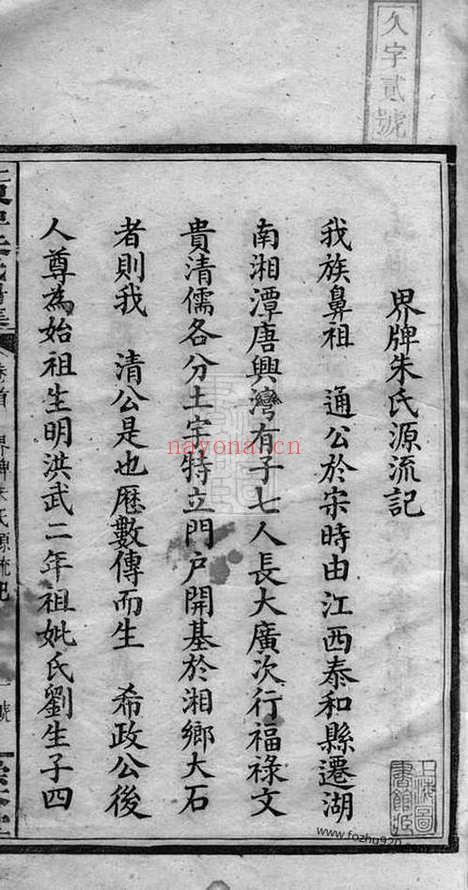 久字貳號
界牌朱氏源流記
我族鼻祖 通公於宋時由江西泰和縣遷湖
南湘潭唐興灣有子七人長大廣次行福祿文
貴清儒各分土宇特立門戶開基於湘鄉大石
者則我 清公是也歷數傳而生 希政公後
人尊為始祖生明洪武二年祖妣氏劉生子四
卷首 界牌朱氏源流記
上海圖書館藏
nayona.cn
www.fozhu920.com